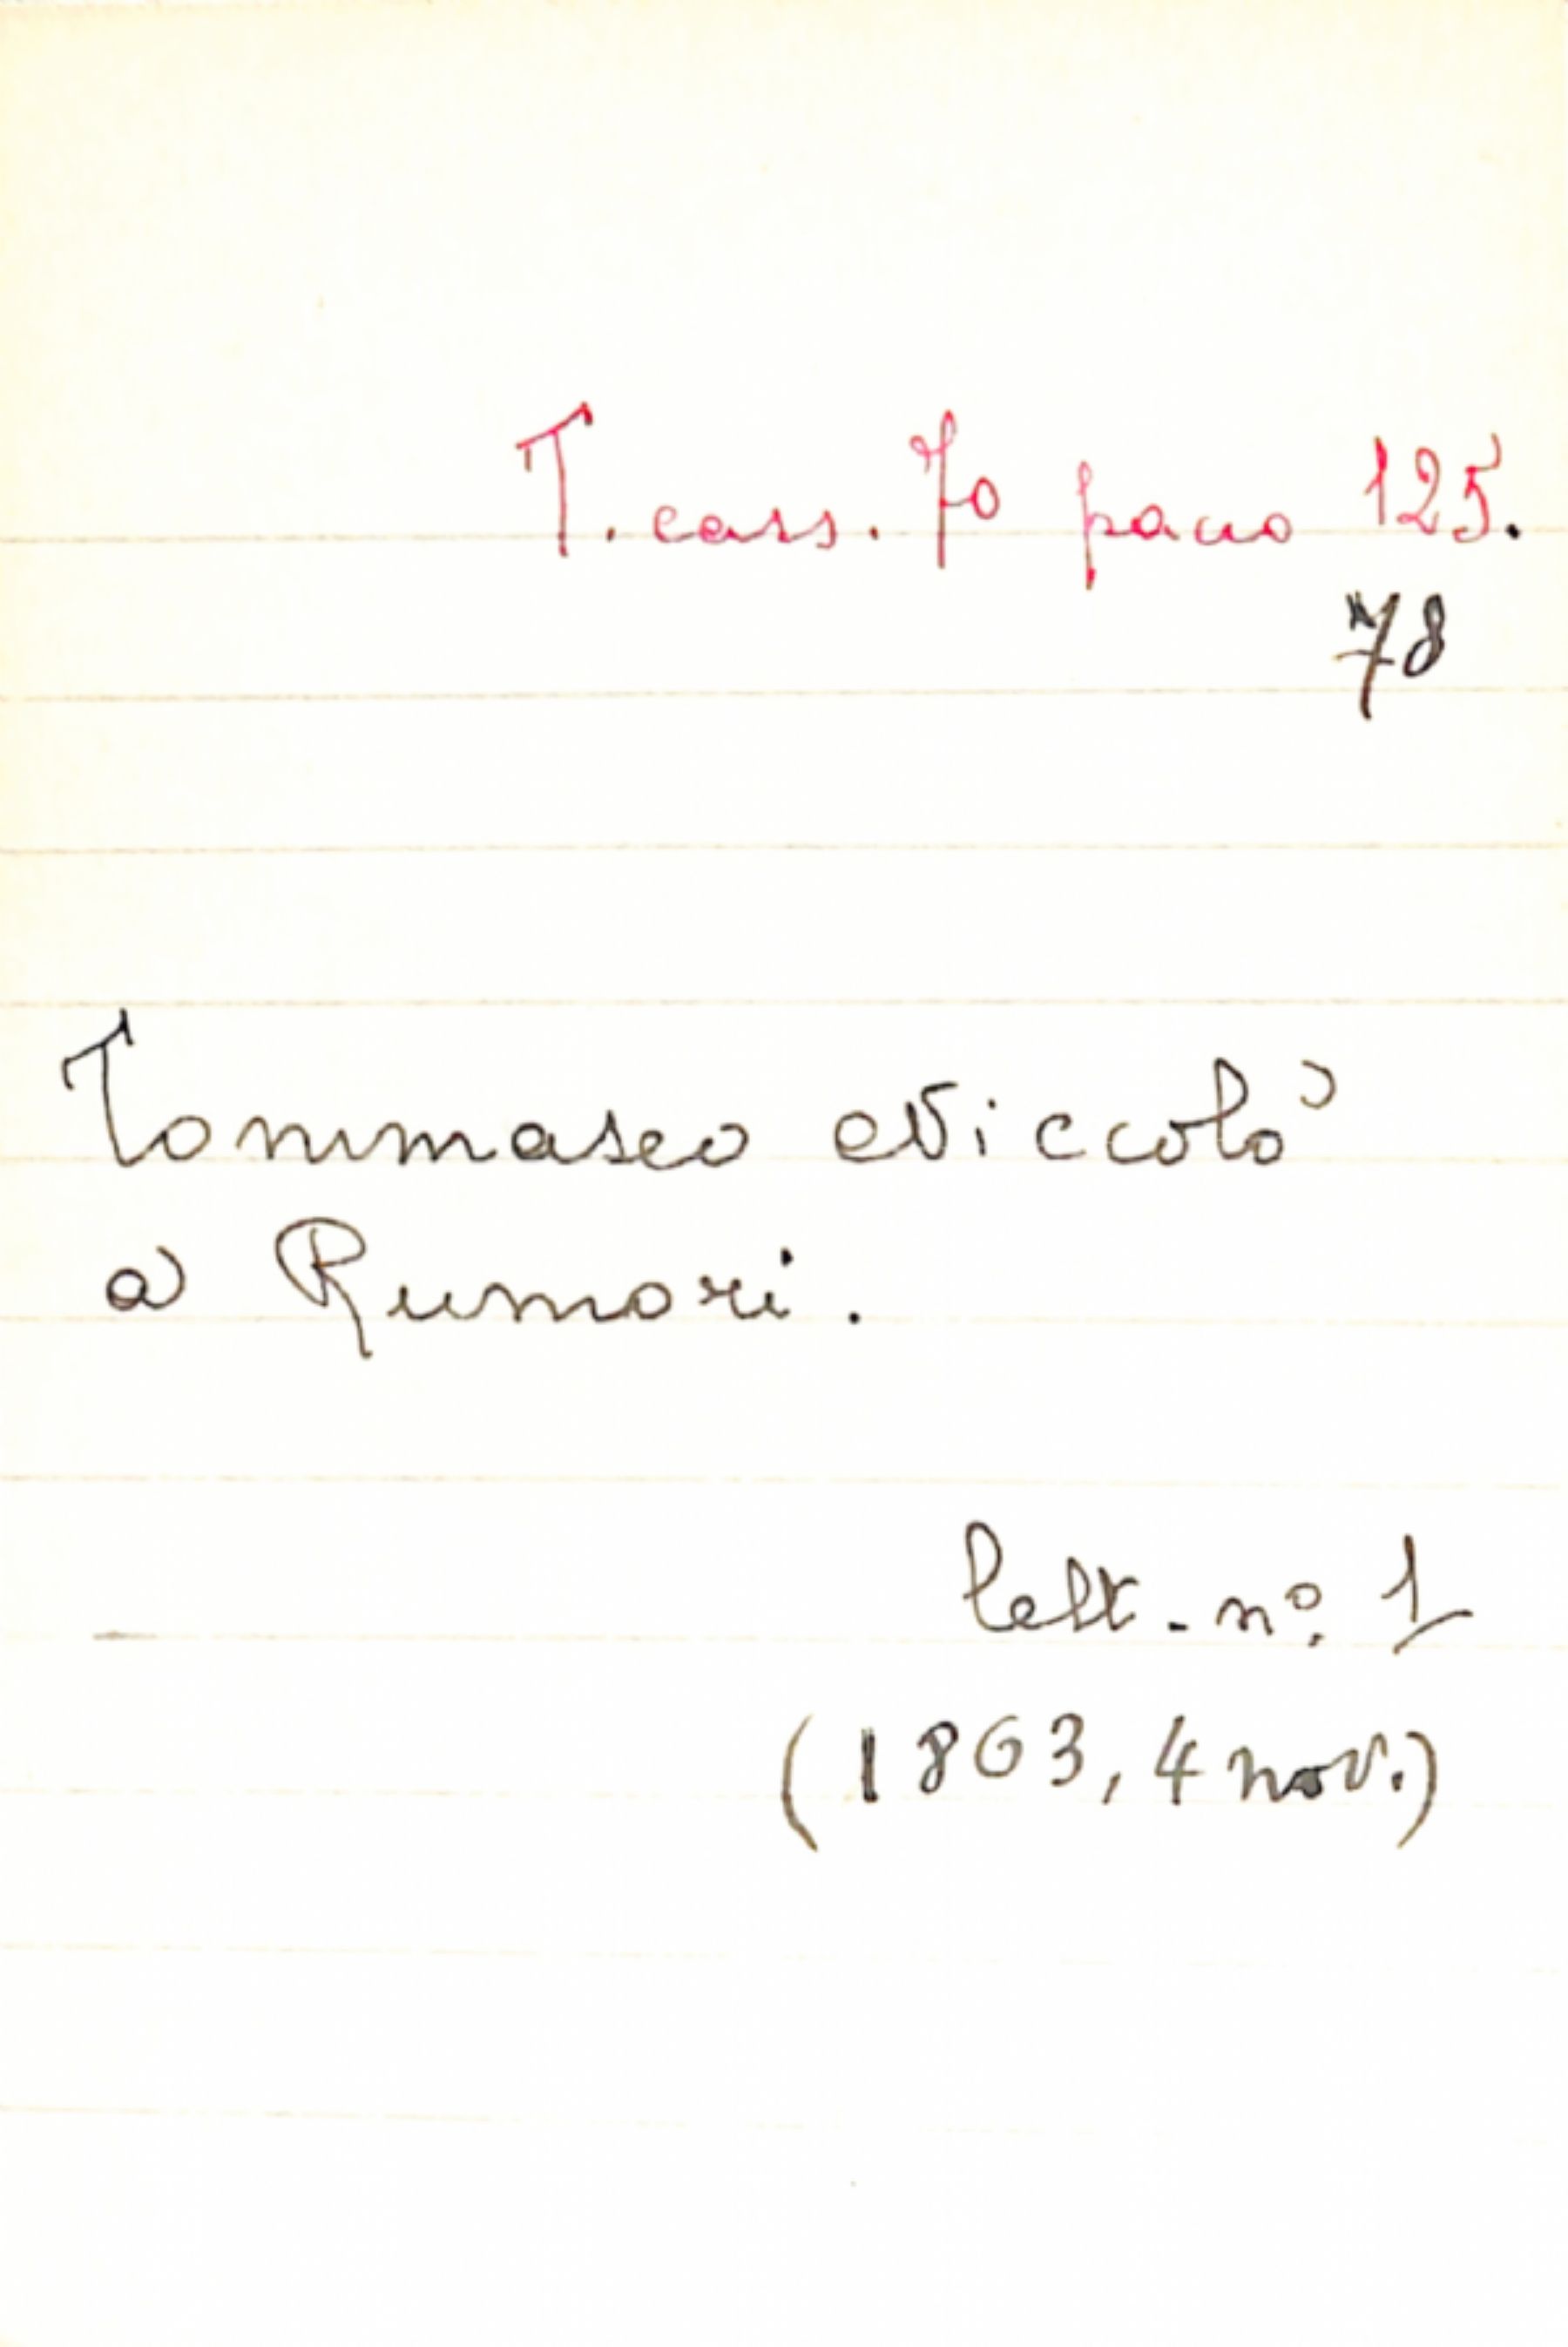 T. cass. 70 pacco 125.
78
Tommaseo Niccolò
a Rumori.
lett. nº. 1
(1863, 4 nov.)